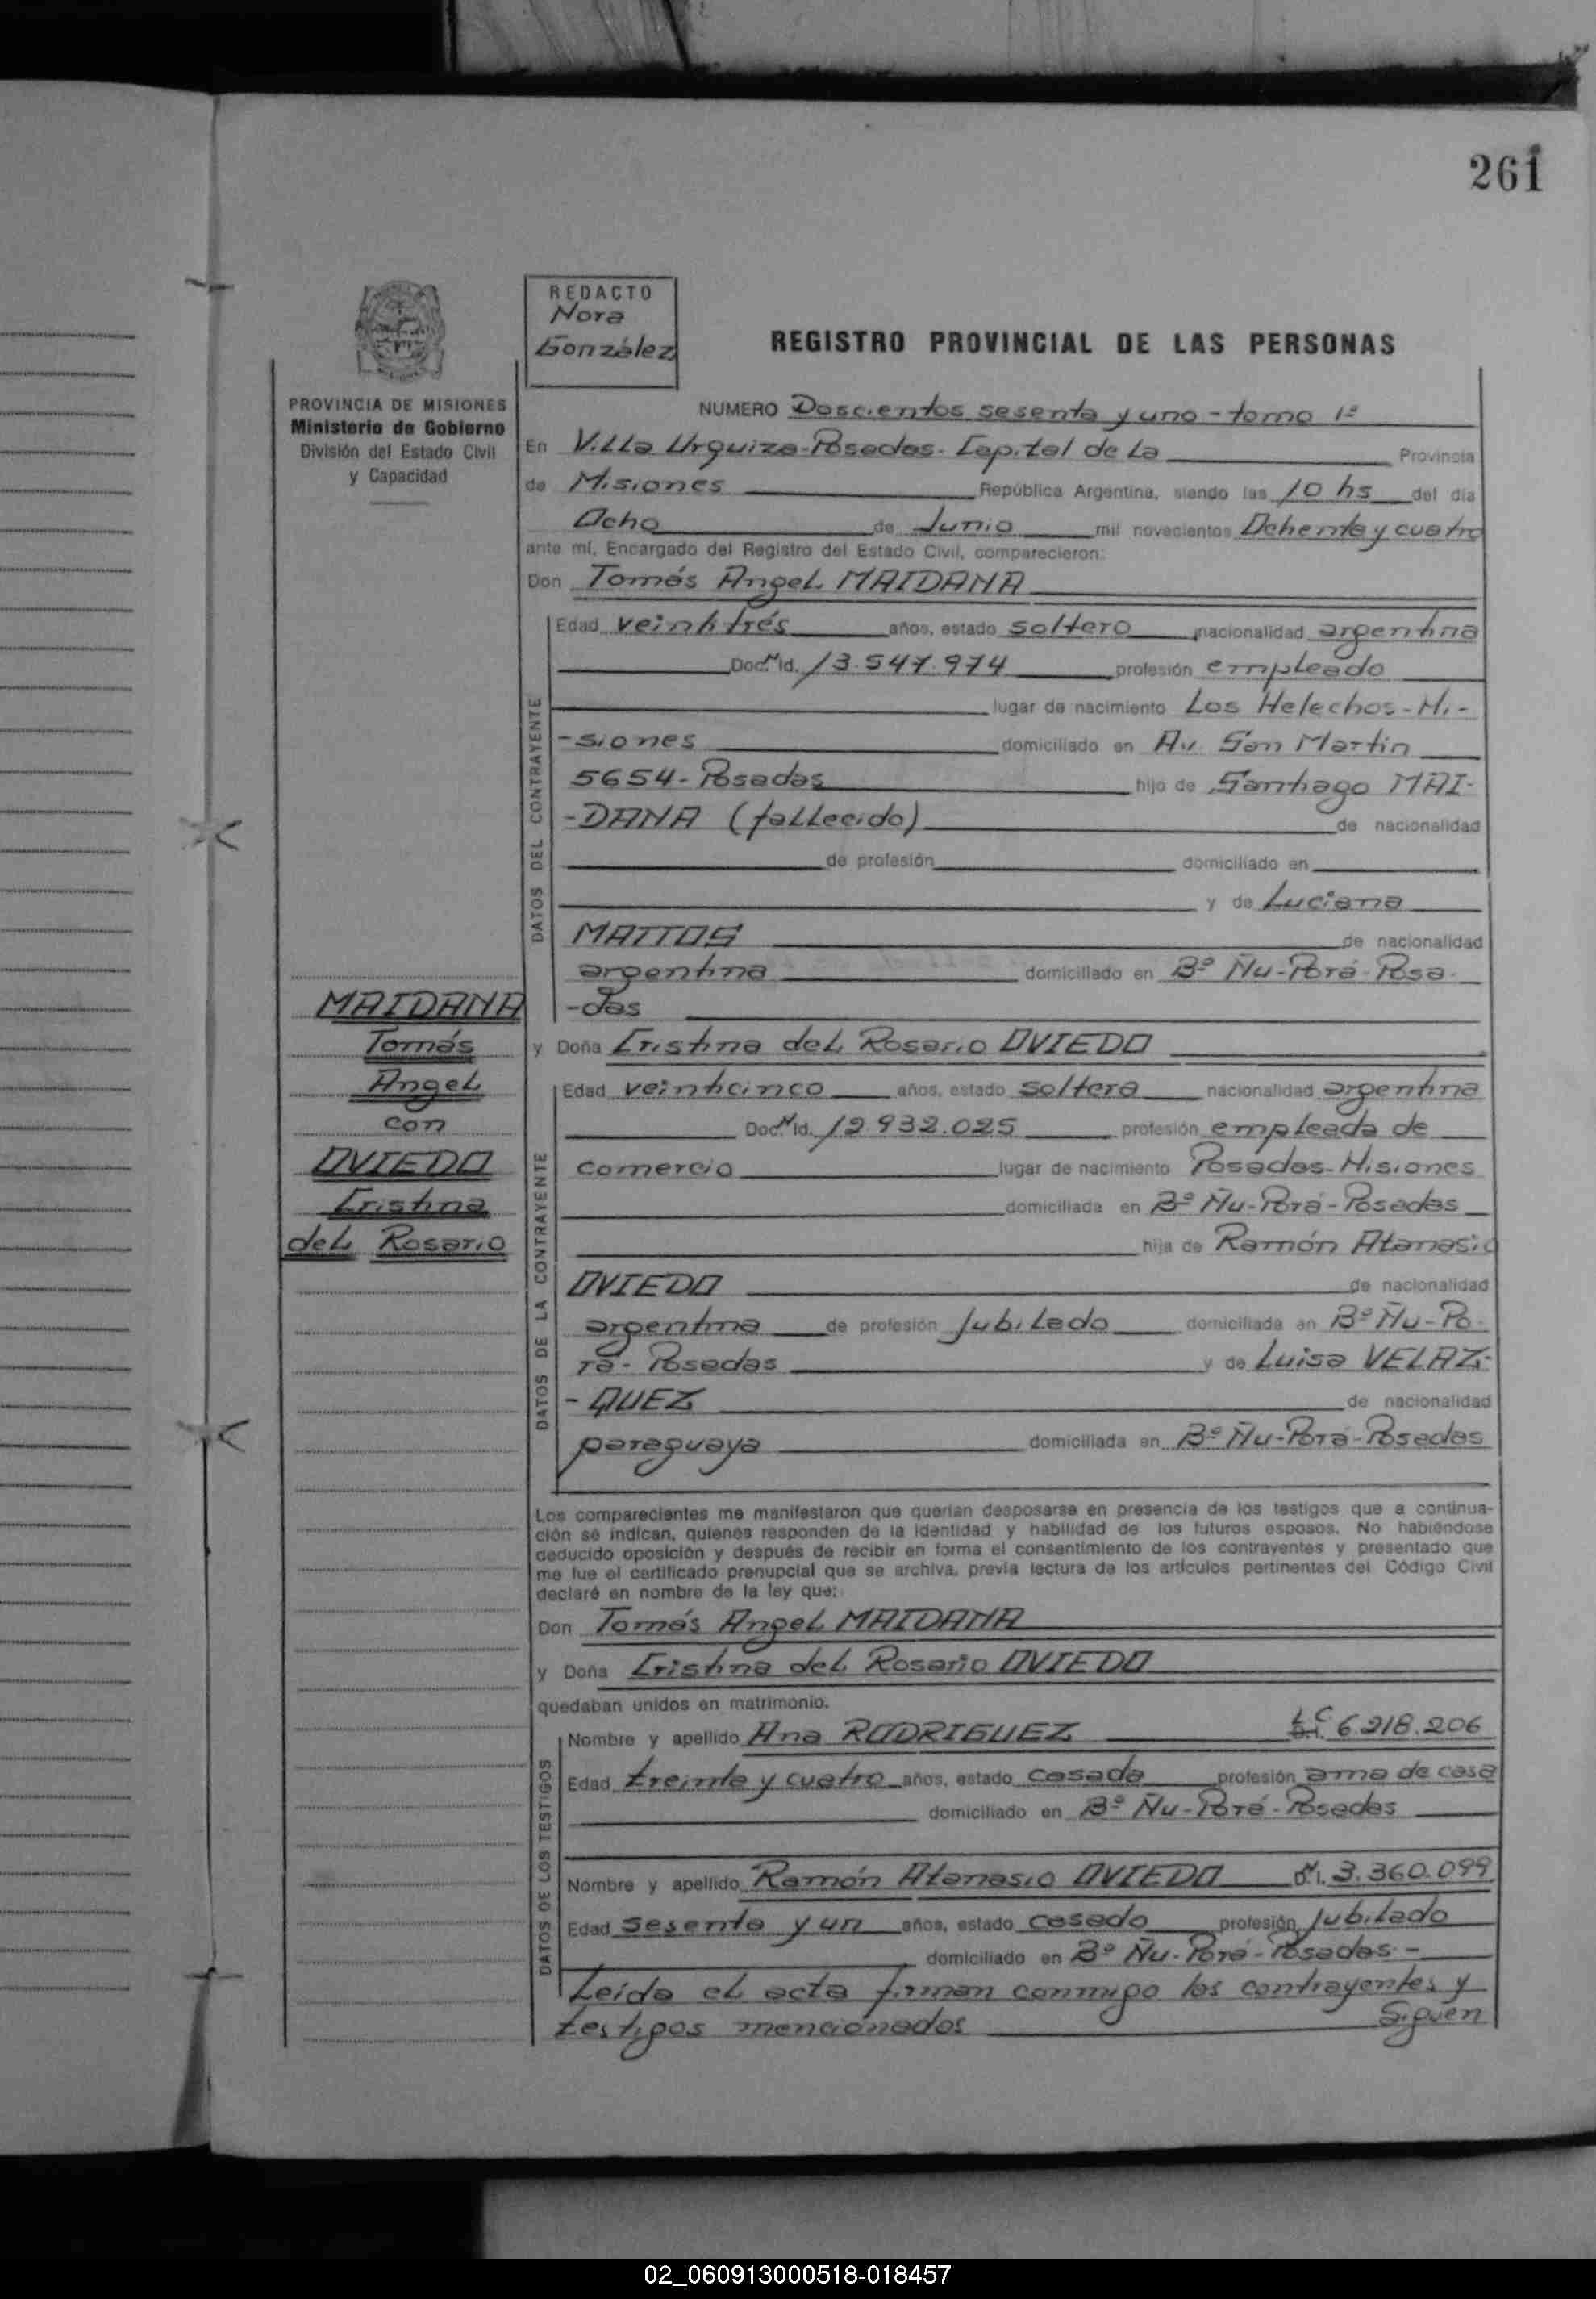 261
REDACTO
Nora
González
REGISTRO PROVINCIAL DE LAS PERSONAS
PROVINCIA DE MISIONES
Ministerio de Gobierno
División del Estado Civil
y Capacidad
NUMERO Doscientos sesenta y uno - tomo 1º
En Villa Urquiza-Posadas-Capital de la Provincia
de Misiones República Argentina, siendo las 10 hs del día
Ocho de Junio mil novecientos Ochenta y cuatro
ante mí, Encargado del Registro del Estado Civil, comparecieron:
Don Tomás Angel MAIDANA
DATOS DEL CONTRAYENTE
Edad veintitrés años, estado soltero nacionalidad argentina
Doc. N Id. 13.547.974 profesión empleado
lugar de nacimiento Los Helechos-Mi-
-siones domiciliado en Av. San Martín
5654-Posadas hijo de Santiago MAI-
-DANA (fallecido) de nacionalidad
de profesión domiciliado en
y de Luciana
MATTOS de nacionalidad
argentina domiciliado en Bº Ñu-Porá-Posa-
-das
MAIDANA
Tomás
Angel
con
OVIEDO
Cristina
del Rosario
y Doña Cristina del Rosario OVIEDO
DATOS DE LA CONTRAYENTE
Edad veinticinco años, estado soltera nacionalidad argentina
Doc. N Id. 12.932.025 profesión empleada de
comercio lugar de nacimiento Posadas-Misiones
domiciliada en Bº Ñu-Porá-Posadas
hija de Ramón Atanasio
OVIEDO de nacionalidad
argentina de profesión Jubilado domiciliada en Bº Ñu-Po-
rá-Posadas y de Luisa VELAZ-
-QUEZ de nacionalidad
paraguaya domiciliada en Bº Ñu-Porá-Posadas
Los comparecientes me manifestaron que querían desposarse en presencia de los testigos que a continua-
ción se indican, quienes responden de la identidad y habilidad de los futuros esposos. No habiéndose
deducido oposición y después de recibir en forma el consentimiento de los contrayentes y presentado que
me fue el certificado prenupcial que se archiva, previa lectura de los artículos pertinentes del Código Civil
declaré en nombre de la ley que:
Don Tomás Angel MAIDANA
y Doña Cristina del Rosario OVIEDO
quedaban unidos en matrimonio.
DATOS DE LOS TESTIGOS
Nombre y apellido Ana RODRIGUEZ L.C. 6.218.206
Edad treinta y cuatro años, estado casada profesión ama de casa
domiciliado en Bº Ñu-Porá-Posadas
Nombre y apellido Ramón Atanasio OVIEDO M.I. 3.360.099
Edad sesenta y un años, estado casado profesión Jubilado
domiciliado en Bº Ñu-Porá-Posadas-
Leída el acta firman conmigo los contrayentes y
testigos mencionados Siguen
02_060913000518-018457